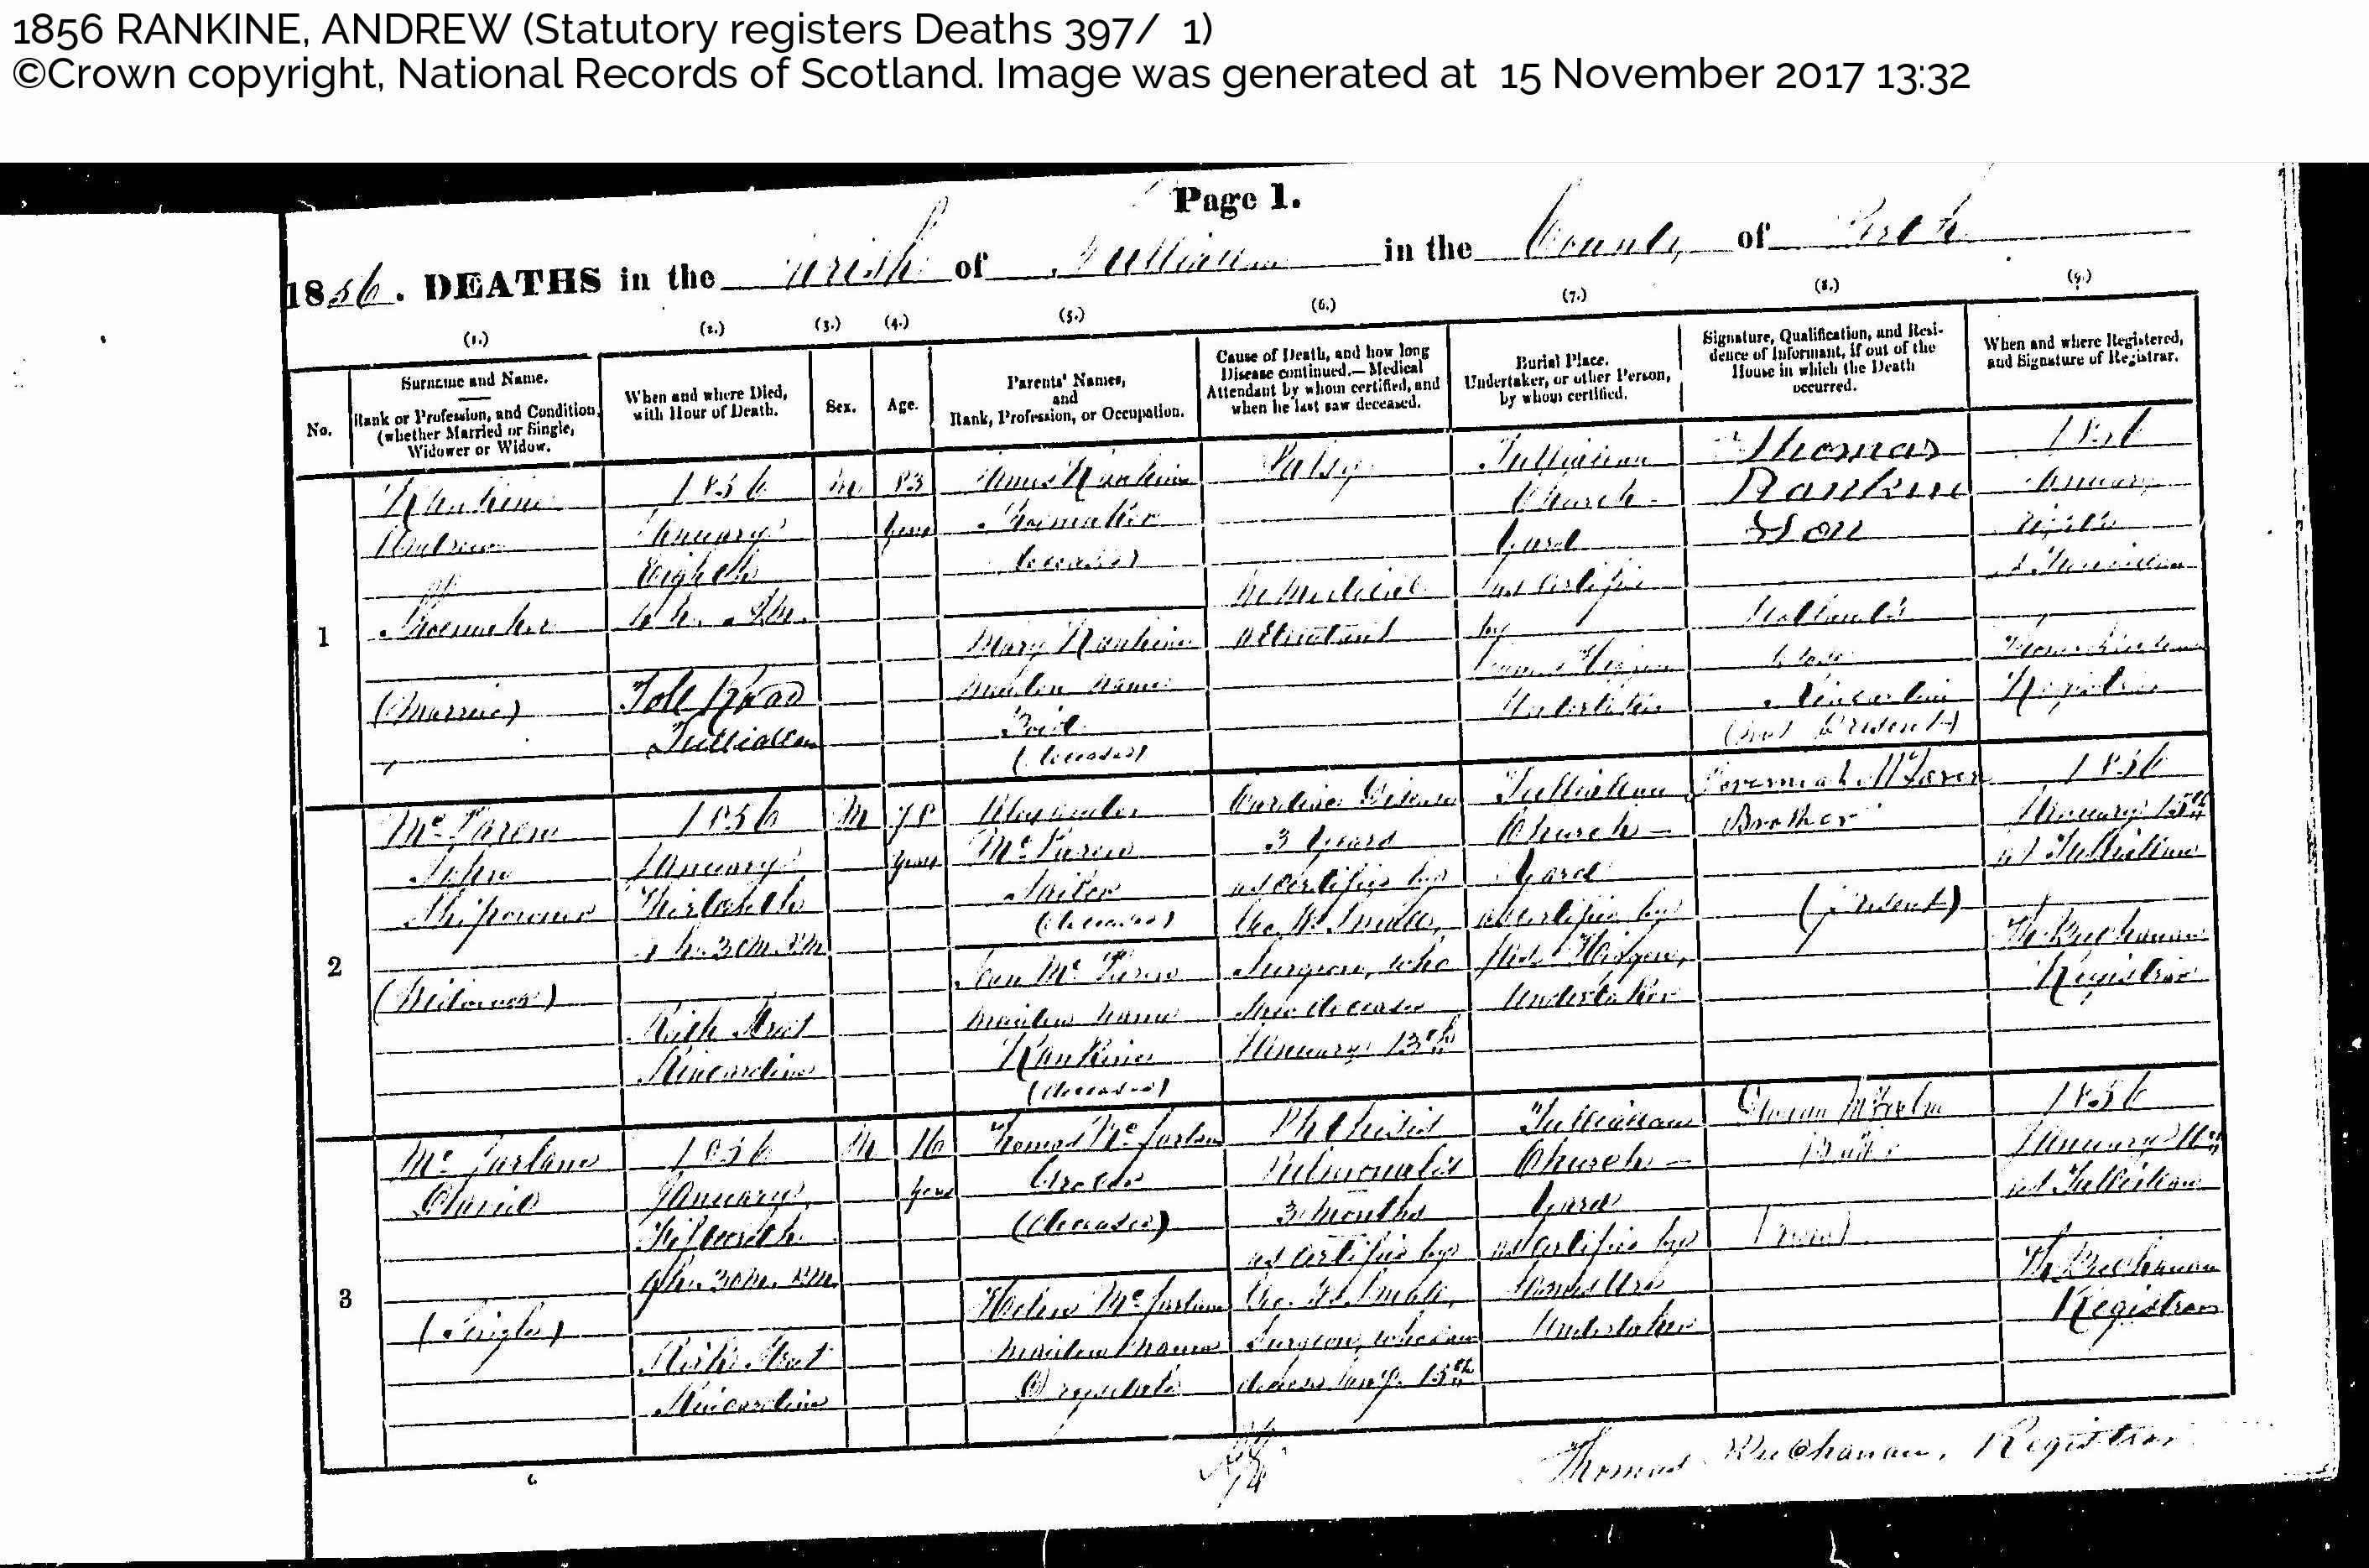 1856 RANKINE, ANDREW (Statutory registers Deaths 397/ 1)
©Crown copyright, National Records of Scotland. Image was generated at 15 November 2017 13:32
Page 1.
1856. DEATHS in the Parish of Tulliallan in the County of Perth
(1.) (2.) (3.) (4.) (5.) (6.) (7.) (8.) (9.)
No.
Surname and Name.
Rank or Profession, and Condition,
(whether Married or Single,
Widower or Widow.
When and where Died,
with Hour of Death.
Sex.
Age.
Parents' Names,
and
Rank, Profession, or Occupation.
Cause of Death, and how long
Disease continued.—Medical
Attendant by whom certified, and
when he last saw deceased.
Burial Place.
Undertaker, or other Person,
by whom certified.
Signature, Qualification, and Resi-
dence of Informant, if out of the
House in which the Death
occurred.
When and where Registered,
and Signature of Registrar.
1
Rankine
Andrew
Shoemaker
(Married)
1856
January
Eighth
Toll Road
Tulliallan
M
83
years
Rankine
Shoemaker
(deceased)
Mary Rankine
maiden name
(deceased)
Palsy
No Medical
attendant
Tulliallan
Church-
Yard
as certified
by
Undertaker
Thomas
Rankine
Son
Kincardine
(not Present)
1856
January
at Tulliallan
Registrar
2
McLaren
John
Shipowner
(Widower)
1856
January
30m. PM
Keith Street
Kincardine
M
78
years
Alexander
McLaren
Sailor
(deceased)
McLaren
maiden name
Rankine
(deceased)
Cardiac Disease
3 Years
as certified by
Surgeon, who
saw deceased
January 13th
Tulliallan
Church-
Yard
as certified by
Undertaker
Jeremiah McLaren
Brother
(present)
1856
January 15th
at Tulliallan
Th. Buchanan
Registrar
3
McFarlane
David
(Single)
1856
January
Fifteenth
9h. 30m. PM
Keith Street
Kincardine
M
16
years
Thomas McFarlane
(deceased)
Helen McFarlane
maiden name
Phthisis
Pulmonalis
3 Months
as certified by
Surgeon, who saw
deceased Jany. 15th
Tulliallan
Church-
Yard
as certified by
Undertaker
1856
January
at Tulliallan
Th. Buchanan
Registrar
Thomas Buchanan, Registrar